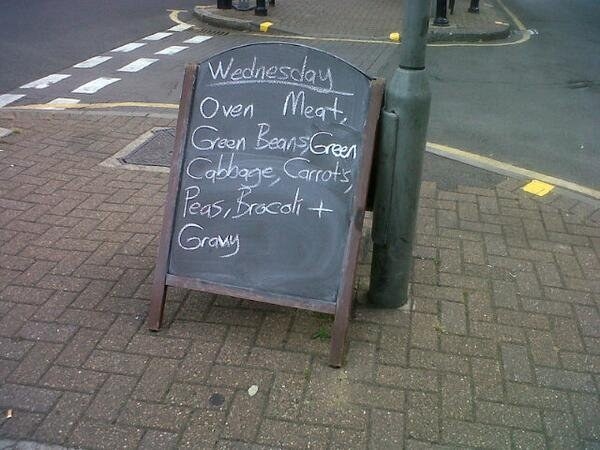 Wednesday
Oven Meat,
Green Beans, Green
Cabbage, Carrots,
Peas, Brocoli +
Gravy